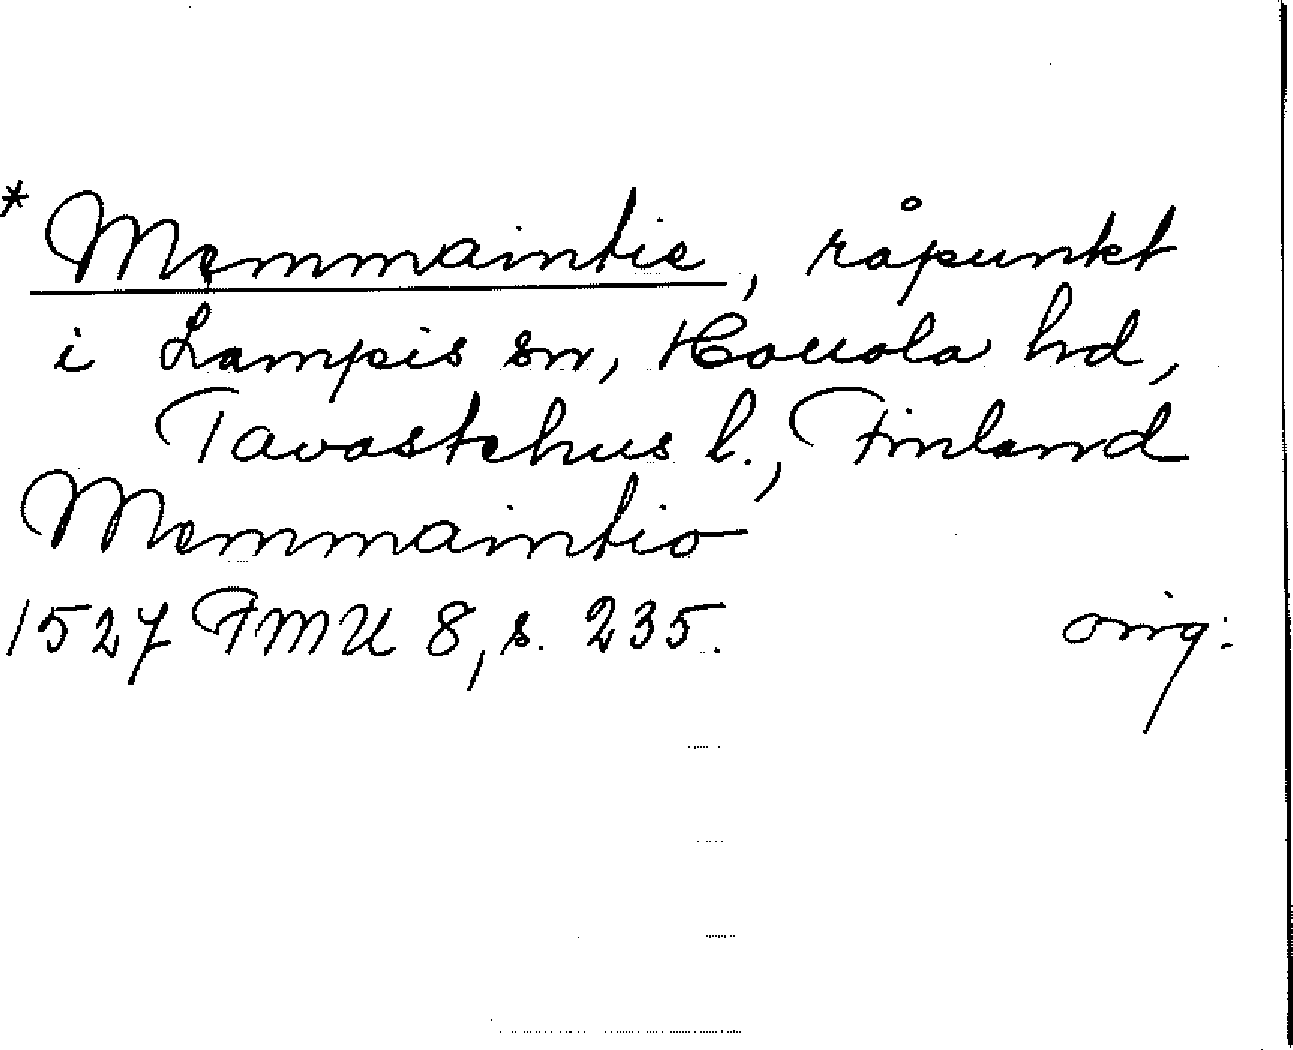 *Memmaintie, råpunkt
i Lampis sn, Hauola hd,
Tavastehus l., Finland
Memmaintio
1527 FMU 8, s. 235. orig: